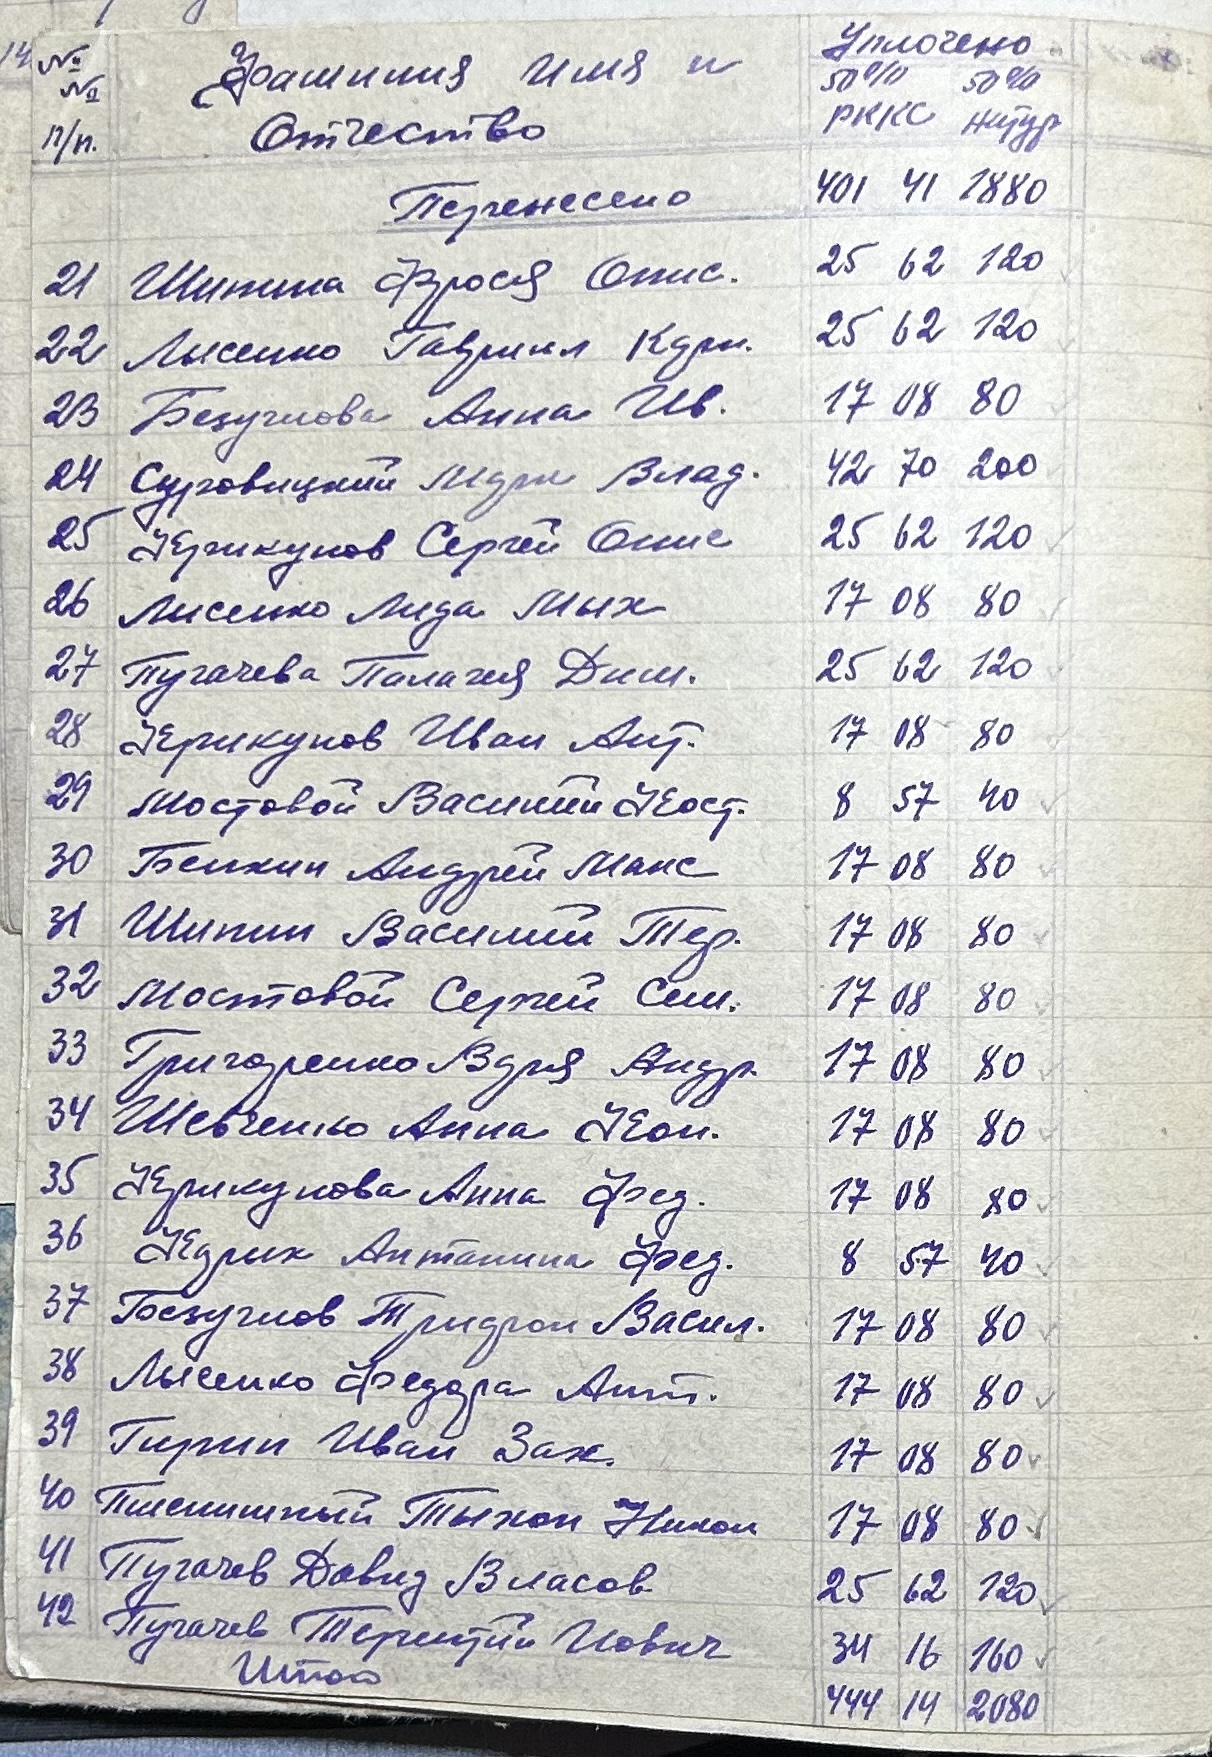 14
№ Фамилия имя и Уплочено
№ 50% 50%
п/п. Отчество РККС натур
Перенесено 401 41 1880
21 Шипина Фрося Онис. 25 62 120
22 Лысенко Гавриил Корн. 25 62 120
23 Безуглова Анна Ив. 17 08 80
24 Суровицкий Марк Влад. 42 70 200
25 Крикунов Сергей Онис 25 62 120
26 Лисенко Лида Мых 17 08 80
27 Пугачева Палагея Дим. 25 62 120
28 Крикунов Иван Ант. 17 08 80
29 Мостовой Василий Кост. 8 57 40
30 Бенкин Андрей Макс 17 08 80
31 Шипин Василий Тер. 17 08 80
32 Мостовой Сергей Сем. 17 08 80
33 Григоренко Варя Андр. 17 08 80
34 Шевченко Анна Кон. 17 08 80
35 Крикунова Анна Фед. 17 08 80
36 Антанина Фед. 8 57 40
37 Безуглов Тридрон Васил. 17 08 80
38 Лысенко Федора Ант. 17 08 80
39 Гирин Иван Зах. 17 08 80
40 Пшенишный Тыхон Никол 17 08 80
41 Пугачев Давид Власов 25 62 120
42 Пугачев Терентий Иович 34 16 160
Итого 444 14 2080